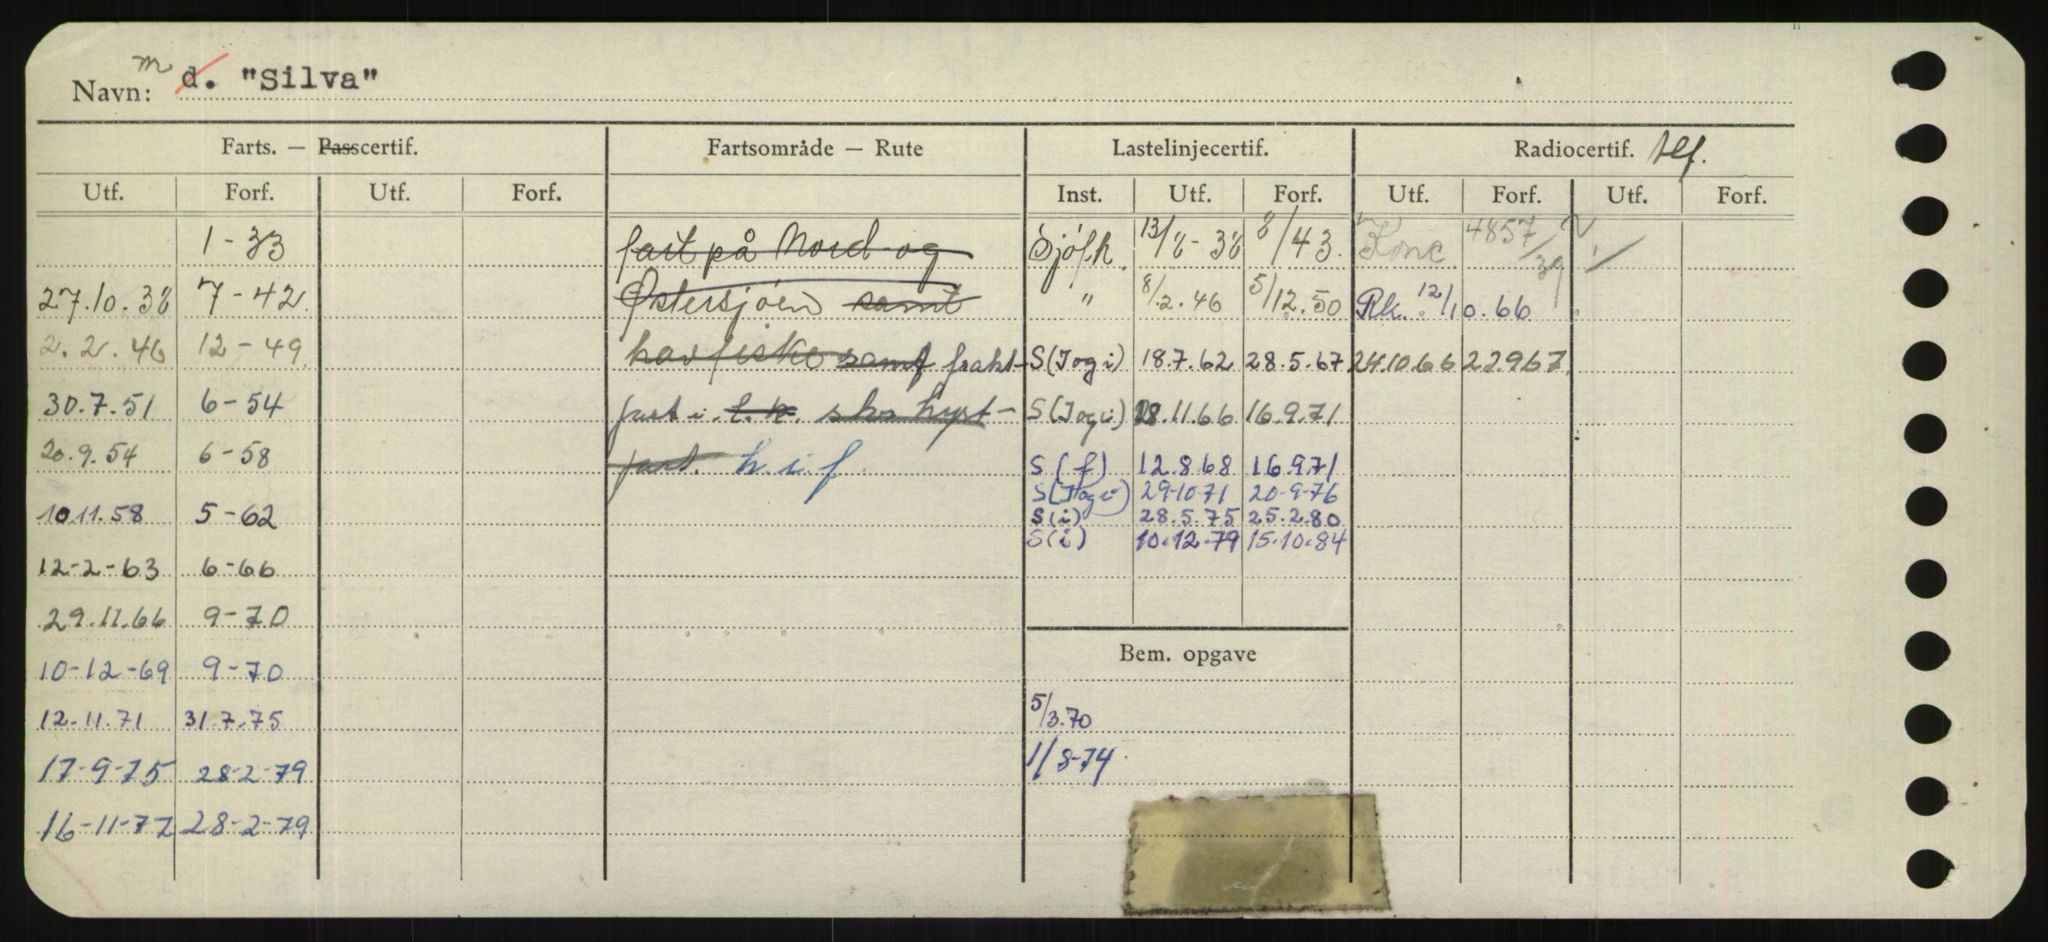 Navn: m d. "Silva"
Farts. — Passcertif. Fartsområde — Rute Lastelinjecertif. Radiocertif. tlf.
Utf. Forf. Utf. Forf. Inst. Utf. Forf. Utf. Forf. Utf. Forf.
1-33 fart på Nord-og Sjöfk. 13/8-38 8/43. Konc 4857/39
27.10.38 7-42 Østersjøen samt " 8/2.46 5/12.50 Rk. 12/10.66
2.2.46 12-49 havfiske samt frakt- S(Iogi) 18.7.62 28.5.67 24.10.66 22.9.67
30.7.51 6-54 fart i l.k. sks kyst- S(Iogi) 28.11.66 16.9.71
20.9.54 6-58 fart. k i f S(f) 12.8.68 16.9.71
S(Iogi) 29-10-71 20-9-76
10.11.58 5-62 S(i) 28.5.75 25.2.80
S(i) 10.12.79 15.10.84
12-2-63 6-66
29.11.66 9-70
Bem. opgave
10-12-69 9-70
12.11.71 31.7.75 5/3.70
17-9-75 28-2-79 1/8-74
16-11-77 28-2-79